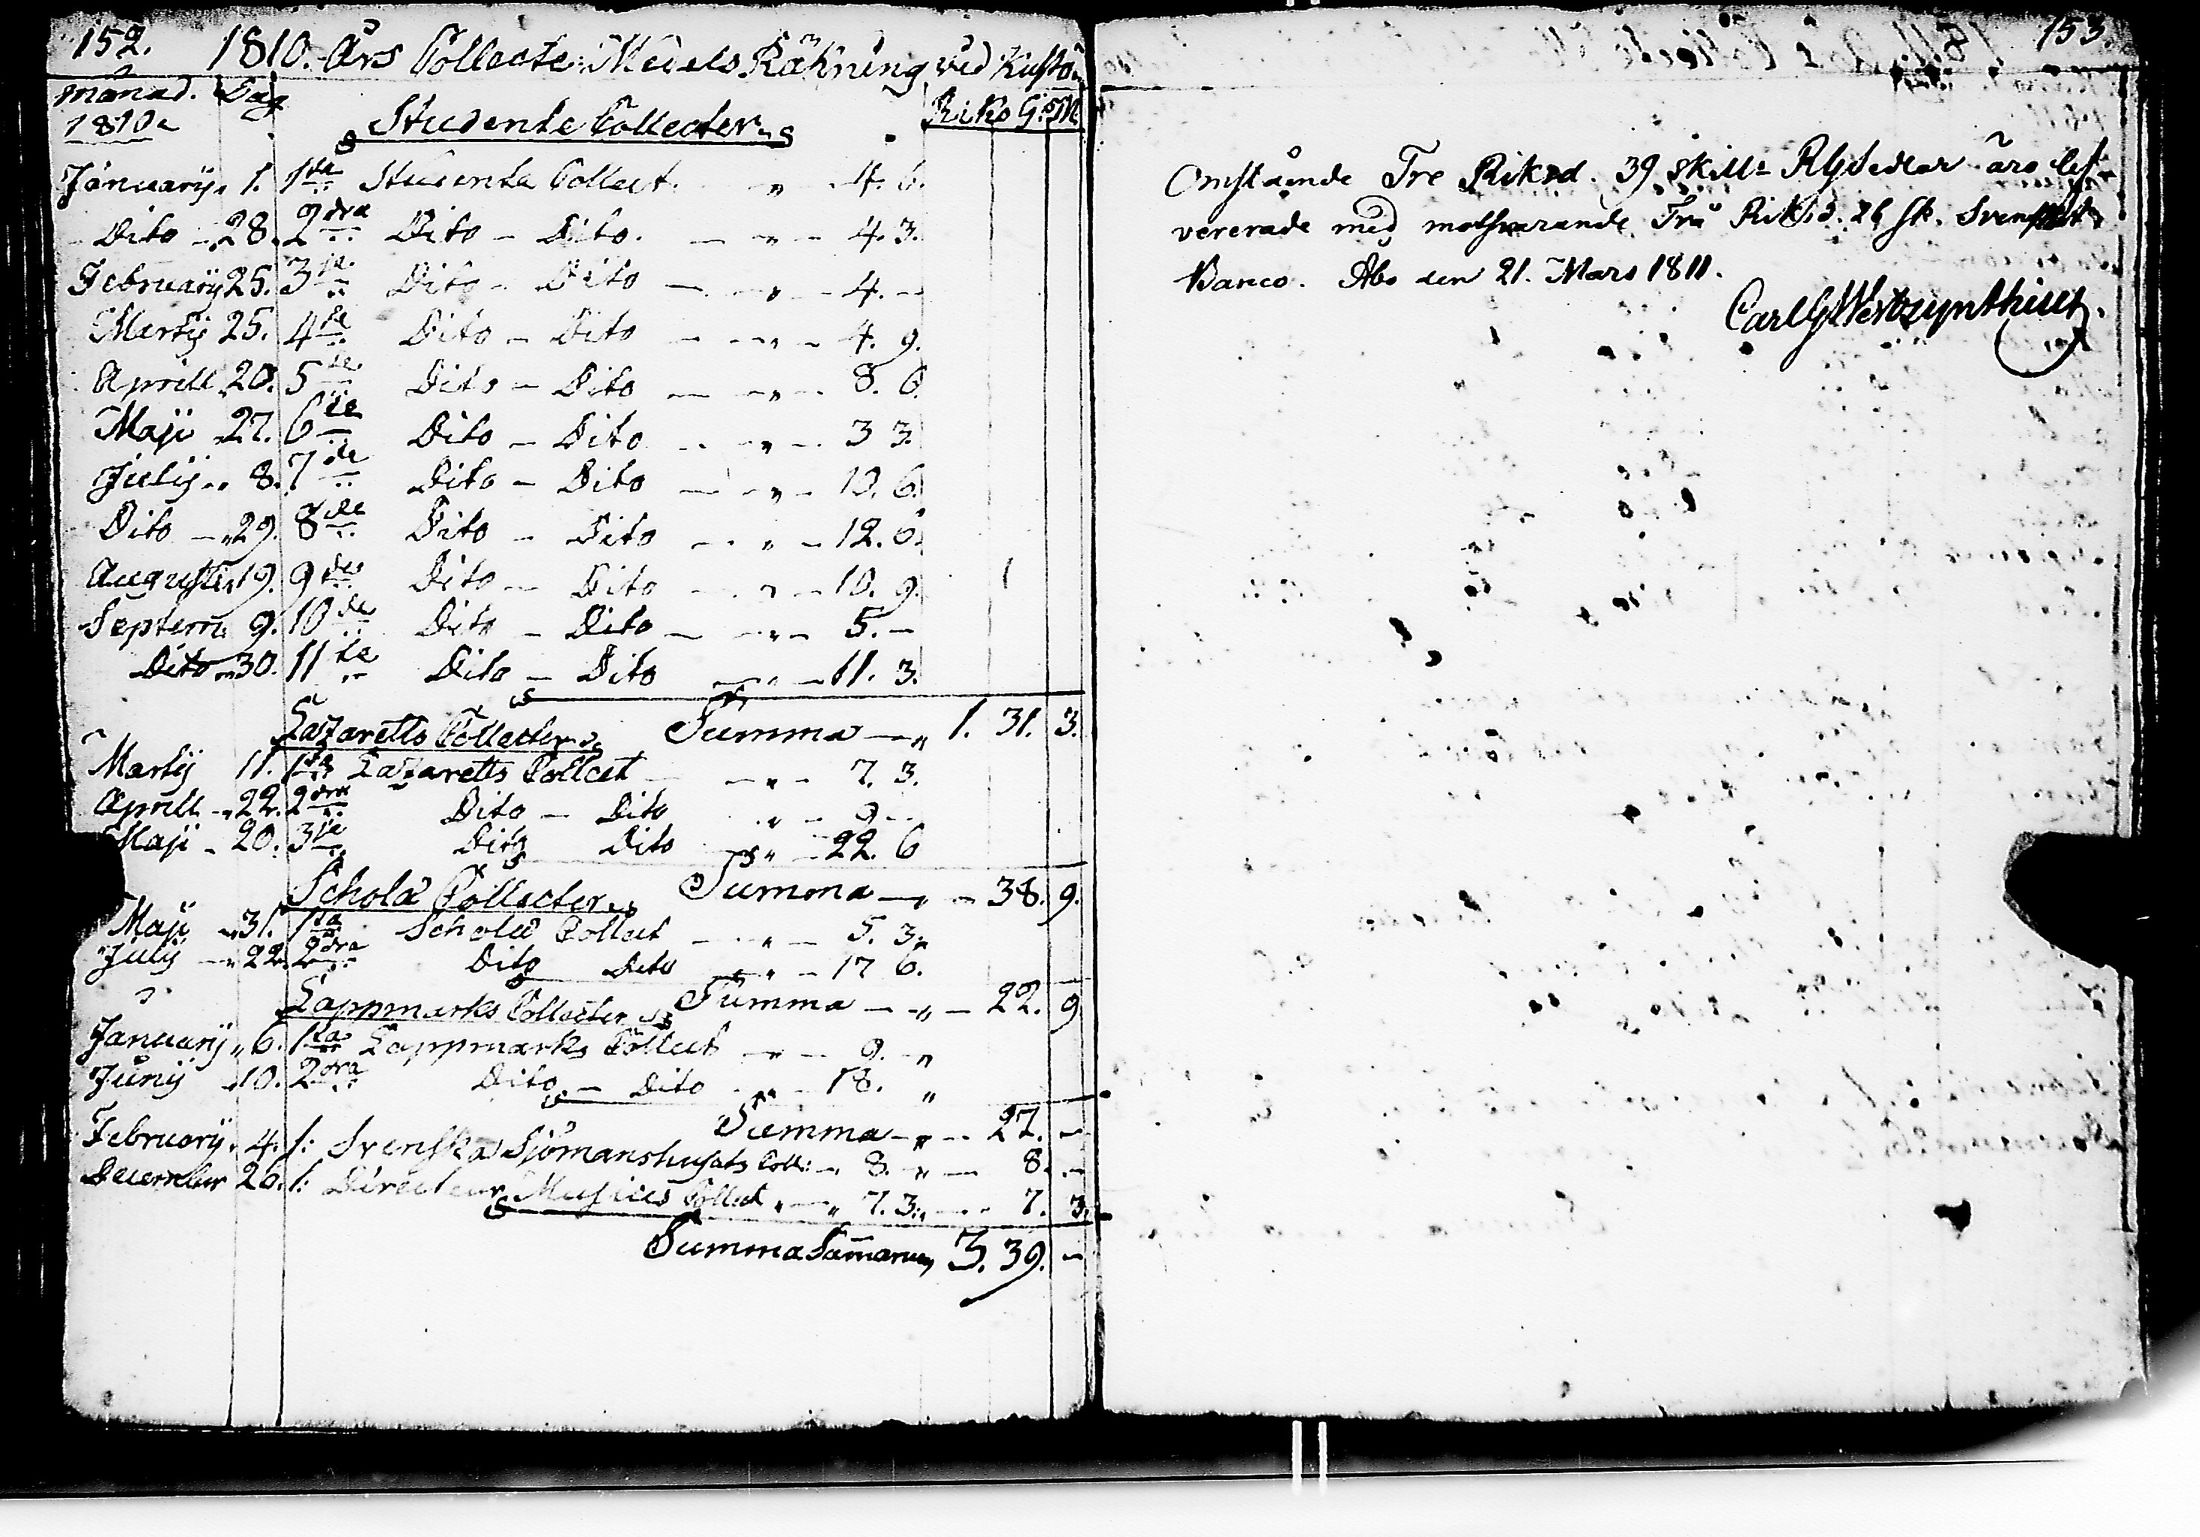 152.
1810. Års Collecte Medels Räkning vid Kustö
Månad. Dag
1810.
Studente Collecter. Riks G: SM
January 1. 1sta Studente Collect. " 4. 6.
Dito 28. 2dra Dito - Dito. " 4. 3.
February 25. 3je Dito - Dito " 4. -
Martij 25. 4de Dito - Dito " 4. 9.
Aprill 20. 5te Dito - Dito " 8. 6.
Maji 27. 6te Dito - Dito " 3 3.
Julij 8. 7de Dito - Dito " 10. 6.
Dito 29. 8de Dito - Dito " 12. 6.
Augusti 19. 9de Dito - Dito " 10. 9.
Septem 9. 10de Dito - Dito " 5. -
Dito 30. 11te Dito - Dito " 11. 3.
Lazaretts Collecter Summa " 1. 31. 3.
Martij 11. 1sta Lazaretts Collect " 7. 3.
Aprill 22. 2dra Dito - Dito " 9 -
Maji 20. 3je Dito Dito " 22. 6
Schola Collecter Summa " 38. 9.
Maji 31. 1sta Schola Collect " 5. 3.
Julij 22. 2dra Dito Dito " 17 6.
Lappmarks Collecter Summa " 22. 9
January 6. 1sta Lappmarks Collect " 9. "
Junij 10. 2dra Dito - Dito " 18. "
Summa " 27. -
February 4. 1: Svenska Sjömanshusets Coll: 8. " 8. -
December 26. 1: Directeur Musices Collect " 7. 3. 7. 3.
Summa Summarum 3. 39. -
153.
Omstående Tre Riksd. 39 skill. Rgsedlar äro lef-
vererade med motsvarande Två Riksd. 26 sk. Svenskt
Banco. Åbo den 21. Mars 1811.